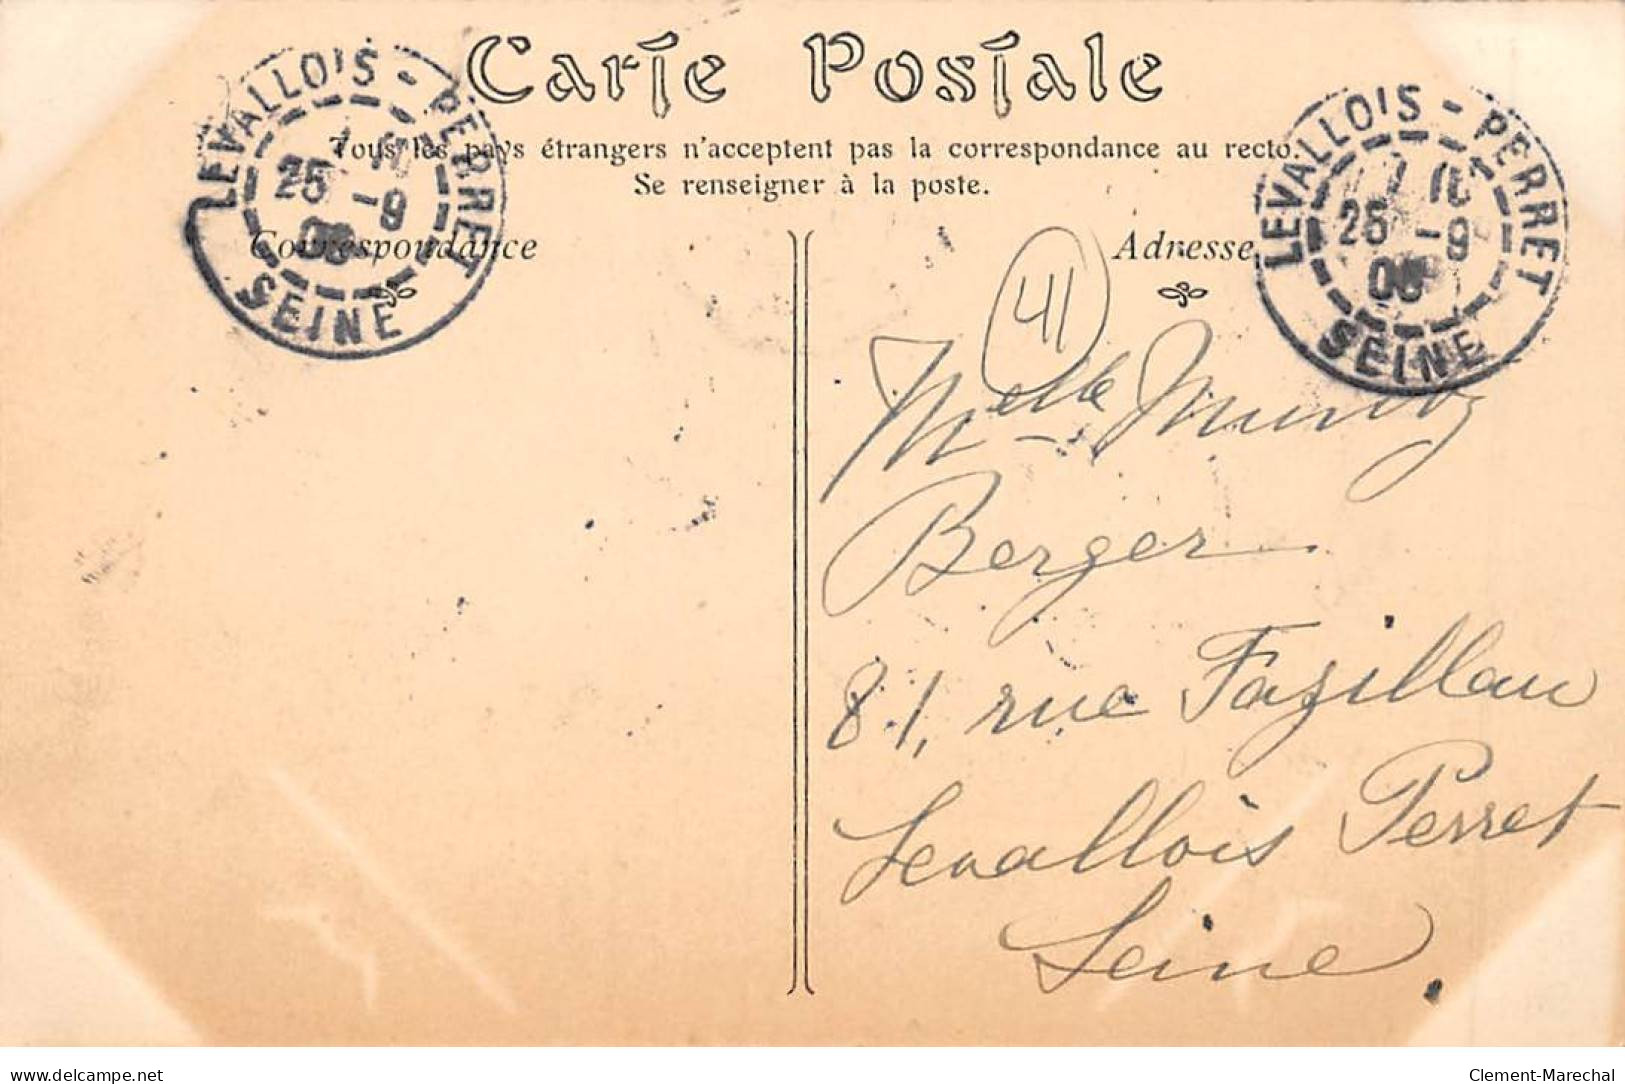 Carte Postale
Tous les pays étrangers n'acceptent pas la correspondance au recto.
Se renseigner à la poste.
Correspondance
Adresse
LEVALLOIS-PERRET
25 -9
SEINE
LEVALLOIS-PERRET
25 -9
SEINE
41
Melle
Berger
81, rue Fazillau
Levallois Perret
Seine.
delcampe.net
Clement-Marechal